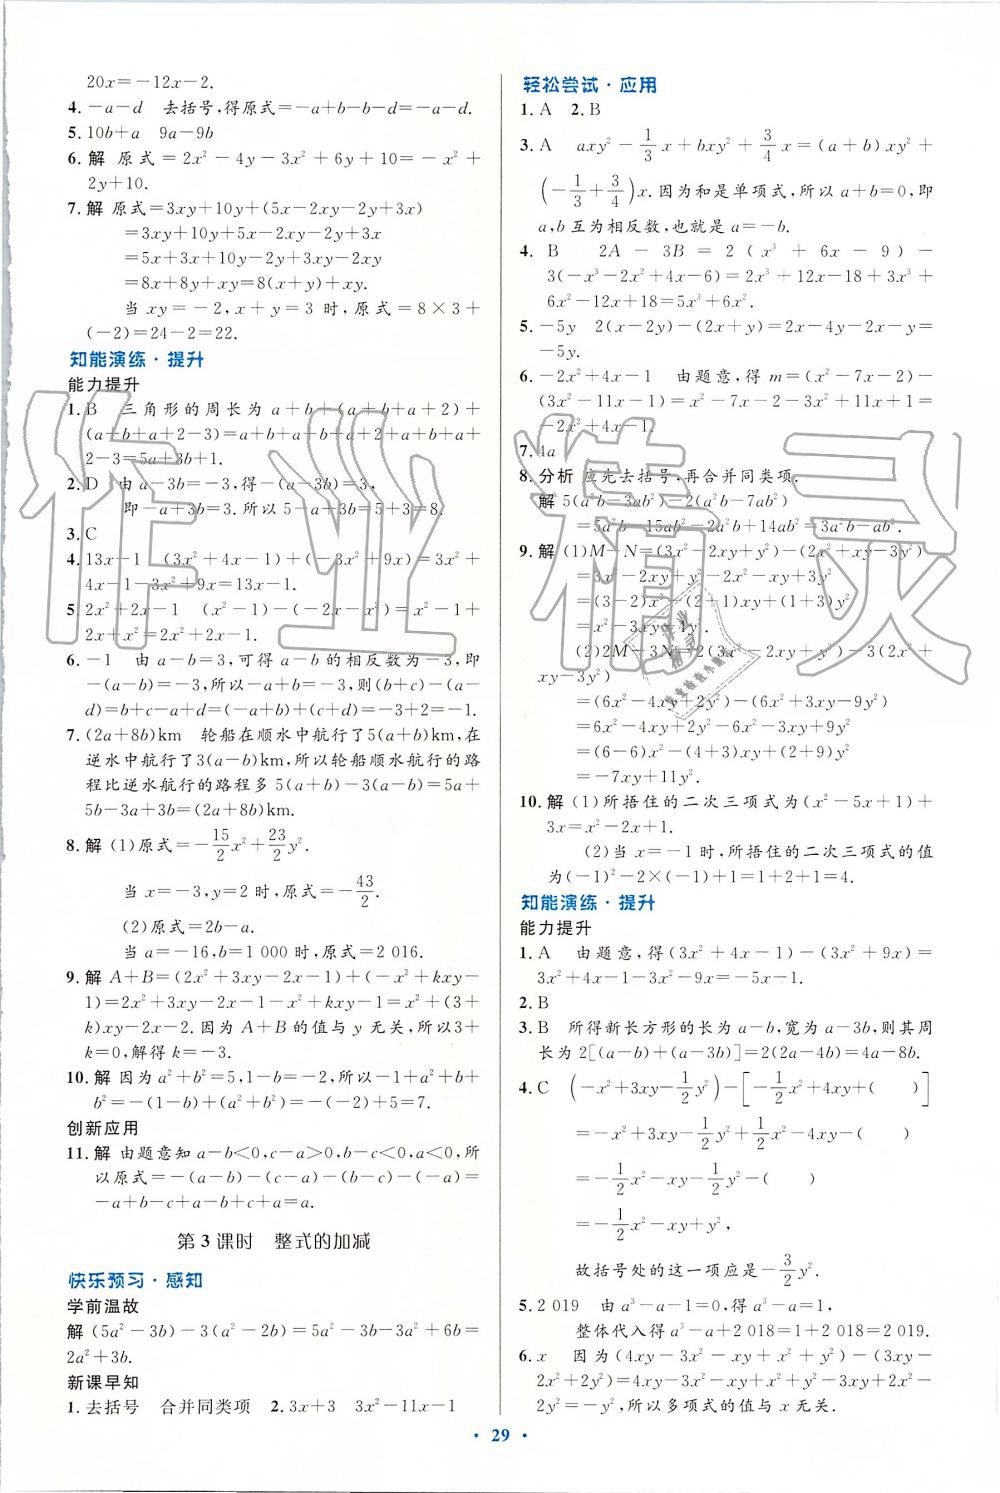 20x=-12x-2.
4. -a-d 去括号,得原式=-a+b-b-d=-a-d.
5. 10b+a 9a-9b
6. 解 原式=2x²-4y-3x²+6y+10=-x²+
2y+10.
7. 解 原式=3xy+10y+(5x-2xy-2y+3x)
=3xy+10y+5x-2xy-2y+3x
=5x+3x+10y-2y+3xy-2xy
=8x+8y+xy=8(x+y)+xy.
当 xy=-2,x+y=3 时,原式=8×3+
(-2)=24-2=22.
知能演练·提升
能力提升
1. B 三角形的周长为 a+b+(a+b+a+2)+
(a+b+a+2-3)=a+b+a+b+a+2+a+b+a+
2-3=5a+3b+1.
2. D 由 a-3b=-3,得-(a-3b)=3,
即-a+3b=3.所以 5-a+3b=5+3=8.
3. C
4. 13x-1 (3x²+4x-1)+(-3x²+9x)=3x²+
4x-1-3x²+9x=13x-1.
5 2x²+2x-1 (x²-1)-(-2x-x²)=x²-1+
2x+x²=2x²+2x-1.
6. -1 由 a-b=3,可得 a-b 的相反数为-3,即
-(a-b)=-3,所以-a+b=-3,则(b+c)-(a-
d)=b+c-a+d=(-a+b)+(c+d)=-3+2=-1.
7. (2a+8b)km 轮船在顺水中航行了5(a+b)km,在
逆水中航行了3(a-b)km,所以轮船顺水航行的路
程比逆水航行的路程多 5(a+b)-3(a-b)=5a+
5b-3a+3b=(2a+8b)km.
8. 解 (1)原式=-15/2x²+23/2y².
当 x=-3,y=2 时,原式=-43/2.
(2)原式=2b-a.
当 a=-16,b=1 000 时,原式=2 016.
9. 解 A+B=(2x²+3xy-2x-1)+(-x²+kxy-
1)=2x²+3xy-2x-1-x²+kxy-1=x²+(3+
k)xy-2x-2.因为 A+B 的值与 y 无关,所以3+
k=0,解得 k=-3.
10. 解 因为 a²+b²=5,1-b=-2,所以-1+a²+b+
b²=-(1-b)+(a²+b²)=-(-2)+5=7.
创新应用
11. 解 由题意知 a-b<0,c-a>0,b-c<0,a<0,所
以原式=-(a-b)-(c-a)-(b-c)-(-a)=
-a+b-c+a-b+c+a=a.
第 3 课时 整式的加减
快乐预习·感知
学前温故
解 (5a²-3b)-3(a²-2b)=5a²-3b-3a²+6b=
2a²+3b.
新课早知
1. 去括号 合并同类项 2. 3x+3 3x²-11x-1
轻松尝试·应用
1. A 2. B
3. A axy²-1/3x+bxy²+3/4x=(a+b)xy²+
(-1/3+3/4)x.因为和是单项式,所以 a+b=0,即
a,b 互为相反数,也就是 a=-b.
4. B 2A-3B=2(x³+6x-9)-
3(-x³-2x²+4x-6)=2x³+12x-18+3x³+
6x²-12x+18=5x³+6x².
5. -5y 2(x-2y)-(2x+y)=2x-4y-2x-y=
-5y.
6. -2x²+4x-1 由题意,得 m=(x²-7x-2)-
(3x²-11x-1)=x²-7x-2-3x²+11x+1=
-2x²+4x-1.
7. 4a
8. 分析 应先去括号,再合并同类项.
解 5(a²b-3ab²)-2(a²b-7ab²)
=5a²b-15ab²-2a²b+14ab²=3a²b-ab².
9. 解 (1)M-N=(3x²-2xy+y²)-(2x²+xy-3y²)
=3x²-2xy+y²-2x²-xy+3y²
=(3-2)x²-(2+1)xy+(1+3)y²
=x²-3xy+4y².
(2)2M-3N=2(3x²-2xy+y²)-3(2x²+
xy-3y²)
=(6x²-4xy+2y²)-(6x²+3xy-9y²)
=6x²-4xy+2y²-6x²-3xy+9y²
=(6-6)x²-(4+3)xy+(2+9)y²
=-7xy+11y².
10. 解 (1)所捂住的二次三项式为(x²-5x+1)+
3x=x²-2x+1.
(2)当 x=-1 时,所捂住的二次三项式的值
为(-1)²-2×(-1)+1=1+2+1=4.
知能演练·提升
能力提升
1. A 由题意,得(3x²+4x-1)-(3x²+9x)=
3x²+4x-1-3x²-9x=-5x-1.
2. B
3. B 所得新长方形的长为 a-b,宽为 a-3b,则其周
长为 2[(a-b)+(a-3b)]=2(2a-4b)=4a-8b.
4. C (-x²+3xy-1/2y²)-[-1/2x²+4xy+( )]
=-x²+3xy-1/2y²+1/2x²-4xy-( )
=-1/2x²-xy-1/2y²-( )
=-1/2x²-xy+y²,
故括号处的这一项应是-3/2y².
5. 2 019 由 a³-a-1=0,得 a³-a=1,
整体代入得 a³-a+2 018=1+2 018=2 019.
6. x 因为(4xy-3x²-xy+x²+y²)-(3xy-
2x²+2y²)=4xy-3x²-xy+x²+y²-3xy+2x²-
2y²=-y²,所以多项式的值与 x 无关.
· 29 ·
作业精灵